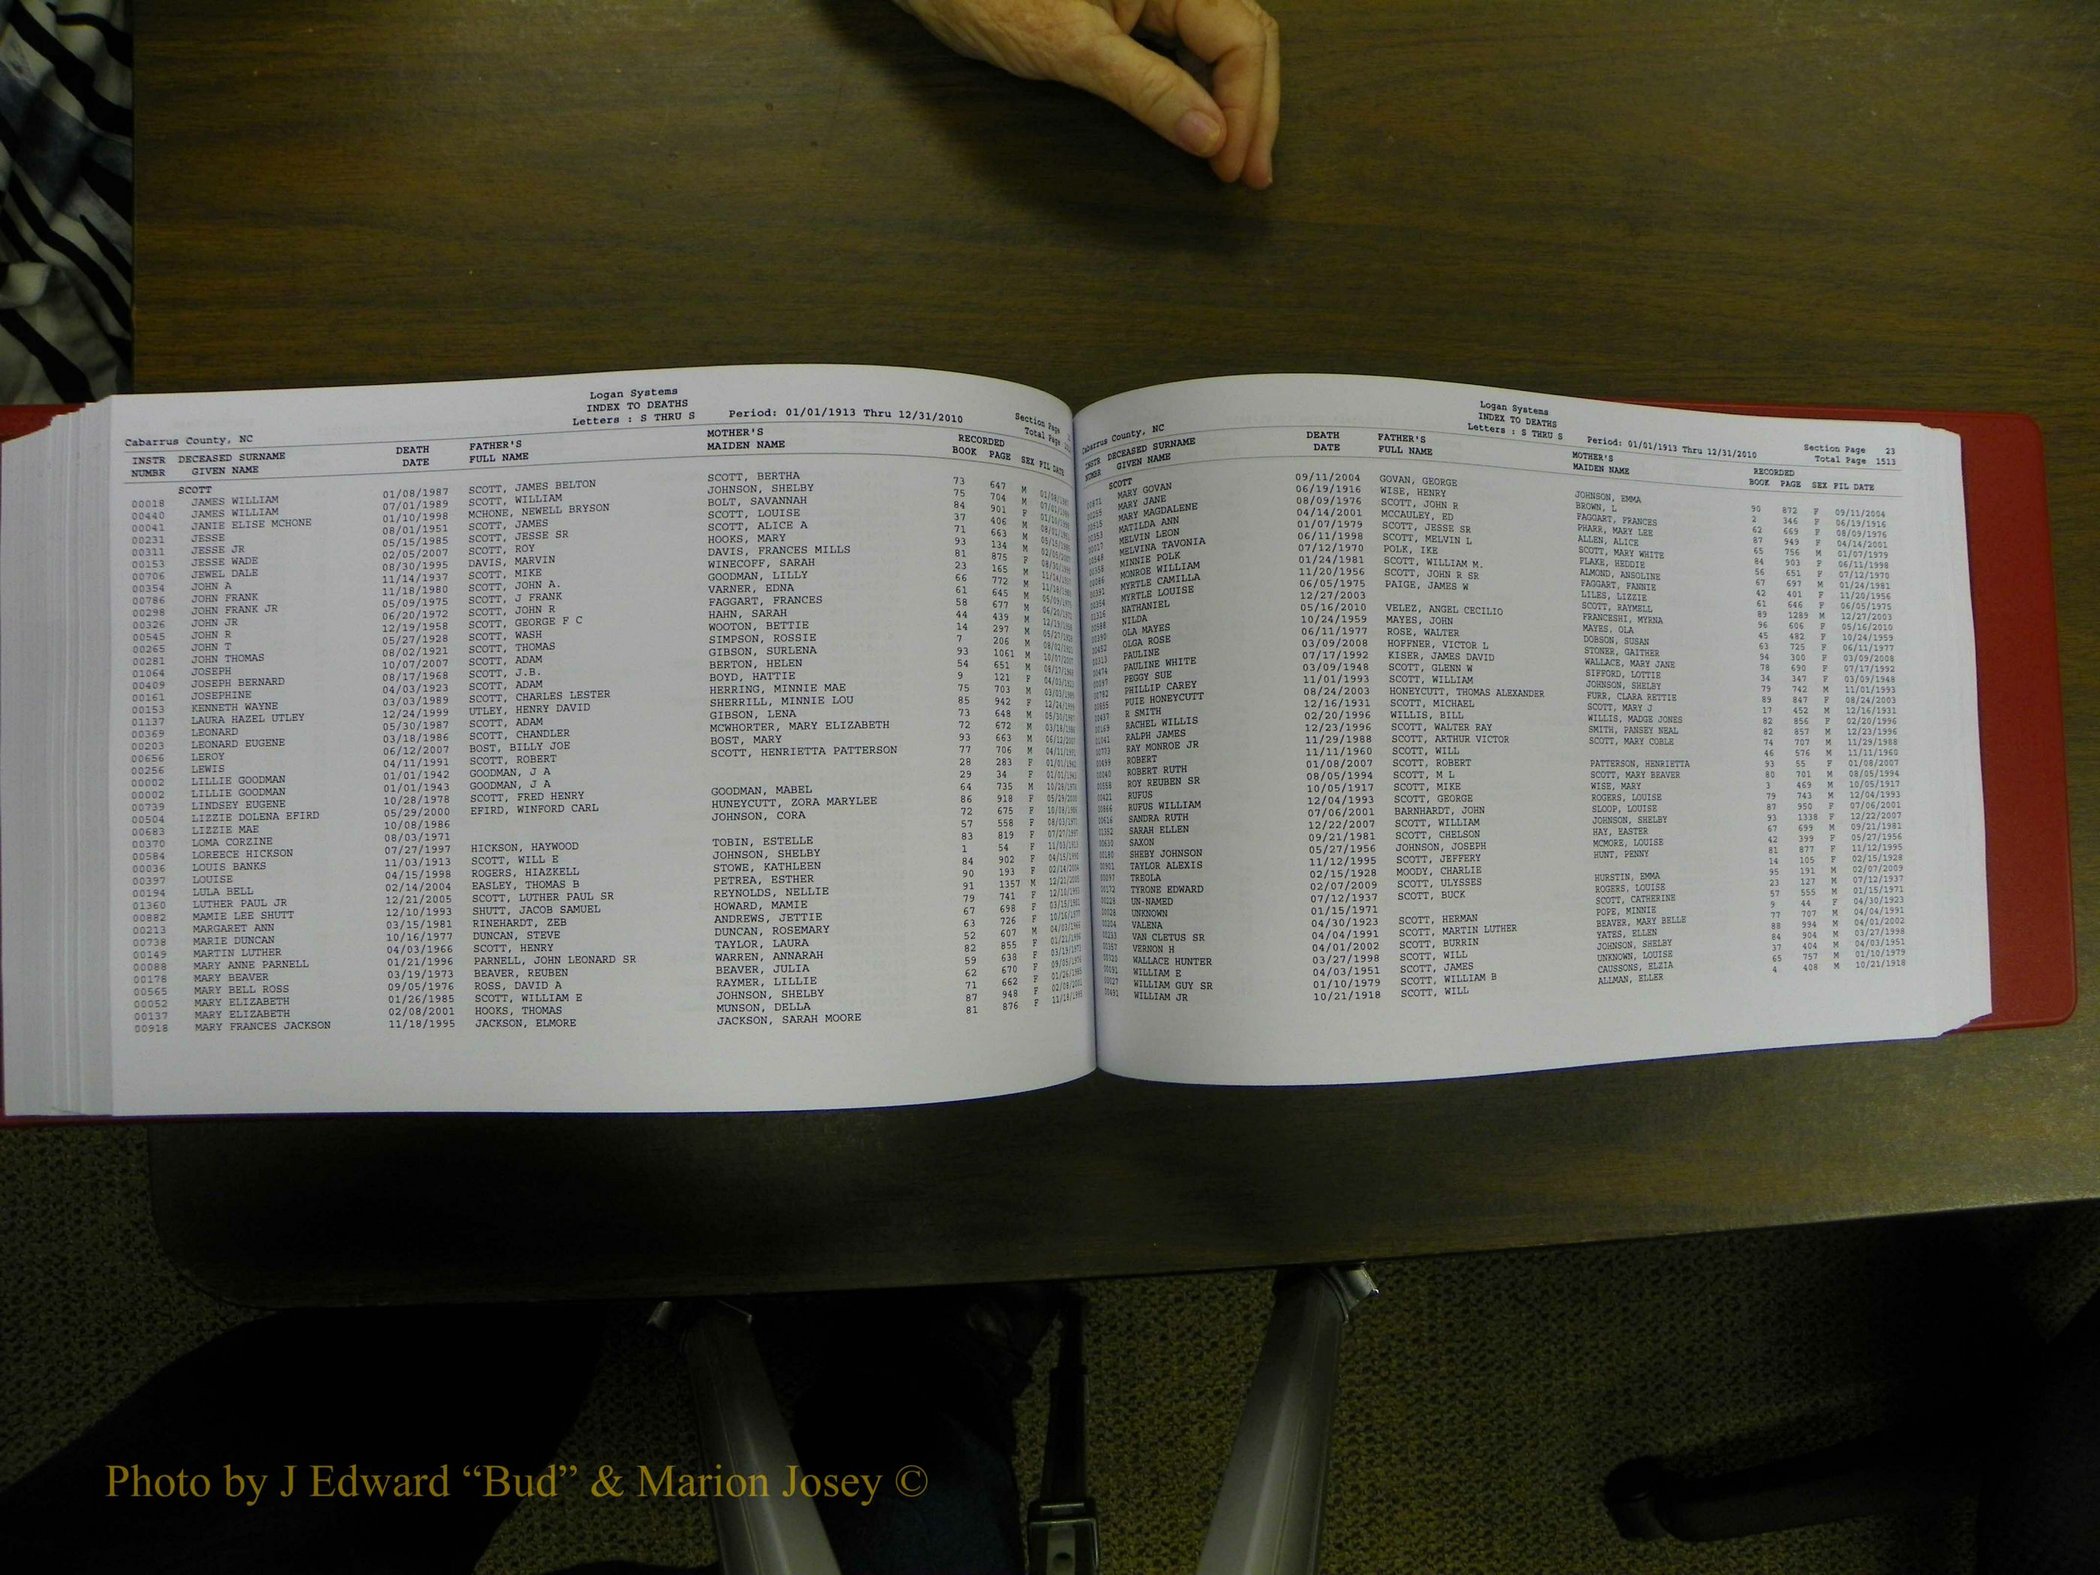 Logan Systems
INDEX TO DEATHS
Letters : S THRU S Period: 01/01/1913 Thru 12/31/2010 Section Page
Cabarrus County, NC Total Page
INSTR DECEASED SURNAME DEATH FATHER'S MOTHER'S RECORDED
NUMBR GIVEN NAME DATE FULL NAME MAIDEN NAME BOOK PAGE SEX FIL DATE
SCOTT
00018 JAMES WILLIAM 01/08/1987 SCOTT, JAMES BELTON SCOTT, BERTHA 73 647 M
00440 JAMES WILLIAM 07/01/1989 SCOTT, WILLIAM JOHNSON, SHELBY 75 704 M
00041 JANIE ELISE MCHONE 01/10/1998 MCHONE, NEWELL BRYSON BOLT, SAVANNAH 84 901 F
00231 JESSE 08/01/1951 SCOTT, JAMES SCOTT, LOUISE 37 406 M
00311 JESSE JR 05/15/1985 SCOTT, JESSE SR SCOTT, ALICE A 71 663 M
00153 JESSE WADE 02/05/2007 SCOTT, ROY HOOKS, MARY 93 134 M
00706 JEWEL DALE 08/30/1995 DAVIS, MARVIN DAVIS, FRANCES MILLS 81 875 F
00354 JOHN A 11/14/1937 SCOTT, MIKE WINECOFF, SARAH 23 165 M
00786 JOHN FRANK 11/18/1980 SCOTT, JOHN A. GOODMAN, LILLY 66 772 M
00298 JOHN FRANK JR 05/09/1975 SCOTT, J FRANK VARNER, EDNA 61 645 M
00326 JOHN JR 06/20/1972 SCOTT, JOHN R FAGGART, FRANCES 58 677 M
00545 JOHN R 12/19/1958 SCOTT, GEORGE F C HAHN, SARAH 44 439 M
00265 JOHN T 05/27/1928 SCOTT, WASH WOOTON, BETTIE 14 297 M
00281 JOHN THOMAS 08/02/1921 SCOTT, THOMAS SIMPSON, ROSSIE 7 206 M
01064 JOSEPH 10/07/2007 SCOTT, ADAM GIBSON, SURLENA 93 1061 M
00409 JOSEPH BERNARD 08/17/1968 SCOTT, J.B. BERTON, HELEN 54 651 M
00161 JOSEPHINE 04/03/1923 SCOTT, ADAM BOYD, HATTIE 9 121 F
00153 KENNETH WAYNE 03/03/1989 SCOTT, CHARLES LESTER HERRING, MINNIE MAE 75 703 M
01137 LAURA HAZEL UTLEY 12/24/1999 UTLEY, HENRY DAVID SHERRILL, MINNIE LOU 85 942 F
00369 LEONARD 05/30/1987 SCOTT, ADAM GIBSON, LENA 73 648 M
00203 LEONARD EUGENE 03/18/1986 SCOTT, CHANDLER MCWHORTER, MARY ELIZABETH 72 672 M
00656 LEROY 06/12/2007 BOST, BILLY JOE BOST, MARY 93 663 M
00256 LEWIS 04/11/1991 SCOTT, ROBERT SCOTT, HENRIETTA PATTERSON 77 706 M
00002 LILLIE GOODMAN 01/01/1942 GOODMAN, J A 28 283 F
00002 LILLIE GOODMAN 01/01/1943 GOODMAN, J A 29 34 F
00739 LINDSEY EUGENE 10/28/1978 SCOTT, FRED HENRY GOODMAN, MABEL 64 735 M
00504 LIZZIE DOLENA EFIRD 05/29/2000 EFIRD, WINFORD CARL HUNEYCUTT, ZORA MARYLEE 86 918 F
00683 LIZZIE MAE 10/08/1986 JOHNSON, CORA 72 675 F
00370 LOMA CORZINE 08/03/1971 57 558 F
00584 LOREECE HICKSON 07/27/1997 HICKSON, HAYWOOD TOBIN, ESTELLE 83 819 F
00036 LOUIS BANKS 11/03/1913 SCOTT, WILL E JOHNSON, SHELBY 1 54 F
00397 LOUISE 04/15/1998 ROGERS, HIAZKELL STOWE, KATHLEEN 84 902 F
00194 LULA BELL 02/14/2004 EASLEY, THOMAS B PETREA, ESTHER 90 193 F
01360 LUTHER PAUL JR 12/21/2005 SCOTT, LUTHER PAUL SR REYNOLDS, NELLIE 91 1357 M
00882 MAMIE LEE SHUTT 12/10/1993 SHUTT, JACOB SAMUEL HOWARD, MAMIE 79 741 F
00213 MARGARET ANN 03/15/1981 RINEHARDT, ZEB ANDREWS, JETTIE 67 698 F
00738 MARIE DUNCAN 10/16/1977 DUNCAN, STEVE DUNCAN, ROSEMARY 63 726 F
00149 MARTIN LUTHER 04/03/1966 SCOTT, HENRY TAYLOR, LAURA 52 607 M
00088 MARY ANNE PARNELL 01/21/1996 PARNELL, JOHN LEONARD SR WARREN, ANNARAH 82 855 F
00178 MARY BEAVER 03/19/1973 BEAVER, REUBEN BEAVER, JULIA 59 638 F
00565 MARY BELL ROSS 09/05/1976 ROSS, DAVID A RAYMER, LILLIE 62 670 F
00052 MARY ELIZABETH 01/26/1985 SCOTT, WILLIAM E JOHNSON, SHELBY 71 662 F
00137 MARY ELIZABETH 02/08/2001 HOOKS, THOMAS MUNSON, DELLA 87 948 F
00918 MARY FRANCES JACKSON 11/18/1995 JACKSON, ELMORE JACKSON, SARAH MOORE 81 876 F
Logan Systems
INDEX TO DEATHS
Letters : S THRU S Period: 01/01/1913 Thru 12/31/2010 Section Page 23
Cabarrus County, NC Total Page 1513
INSTR DECEASED SURNAME DEATH FATHER'S MOTHER'S RECORDED
NUMBR GIVEN NAME DATE FULL NAME MAIDEN NAME BOOK PAGE SEX FIL DATE
SCOTT
MARY GOVAN 09/11/2004 GOVAN, GEORGE JOHNSON, EMMA 90 872 F 09/11/2004
MARY JANE 06/19/1916 WISE, HENRY BROWN, L 2 346 F 06/19/1916
MARY MAGDALENE 08/09/1976 SCOTT, JOHN R FAGGART, FRANCES 62 669 F 08/09/1976
MATILDA ANN 04/14/2001 MCCAULEY, ED PHARR, MARY LEE 87 949 F 04/14/2001
MELVIN LEON 01/07/1979 SCOTT, JESSE SR ALLEN, ALICE 65 756 M 01/07/1979
MELVINA TAVONIA 06/11/1998 SCOTT, MELVIN L SCOTT, MARY WHITE 84 903 F 06/11/1998
MINNIE POLK 07/12/1970 POLK, IKE FLAKE, HEDDIE 56 651 F 07/12/1970
MONROE WILLIAM 01/24/1981 SCOTT, WILLIAM M. ALMOND, ANSOLINE 67 697 M 01/24/1981
MYRTLE CAMILLA 11/20/1956 SCOTT, JOHN R SR FAGGART, FANNIE 42 401 F 11/20/1956
MYRTLE LOUISE 06/05/1975 PAIGE, JAMES W LILES, LIZZIE 61 646 F 06/05/1975
NATHANIEL 12/27/2003 SCOTT, RAYMELL 89 1289 M 12/27/2003
NILDA 05/16/2010 VELEZ, ANGEL CECILIO FRANCESHI, MYRNA 96 606 F 05/16/2010
OLA MAYES 10/24/1959 MAYES, JOHN MAYES, OLA 45 482 F 10/24/1959
OLGA ROSE 06/11/1977 ROSE, WALTER DOBSON, SUSAN 63 725 F 06/11/1977
PAULINE 03/09/2008 HOFFNER, VICTOR L STONER, GAITHER 94 300 F 03/09/2008
PAULINE WHITE 07/17/1992 KISER, JAMES DAVID WALLACE, MARY JANE 78 690 F 07/17/1992
PEGGY SUE 03/09/1948 SCOTT, GLENN W SIFFORD, LOTTIE 34 347 F 03/09/1948
PHILLIP CAREY 11/01/1993 SCOTT, WILLIAM JOHNSON, SHELBY 79 742 M 11/01/1993
PUIE HONEYCUTT 08/24/2003 HONEYCUTT, THOMAS ALEXANDER FURR, CLARA RETTIE 89 847 F 08/24/2003
R SMITH 12/16/1931 SCOTT, MICHAEL SCOTT, MARY J 17 452 M 12/16/1931
RACHEL WILLIS 02/20/1996 WILLIS, BILL WILLIS, MADGE JONES 82 856 F 02/20/1996
RALPH JAMES 12/23/1996 SCOTT, WALTER RAY SMITH, PANSEY NEAL 82 857 M 12/23/1996
RAY MONROE JR 11/29/1988 SCOTT, ARTHUR VICTOR SCOTT, MARY COBLE 74 707 M 11/29/1988
ROBERT 11/11/1960 SCOTT, WILL 46 576 M 11/11/1960
ROBERT RUTH 01/08/2007 SCOTT, ROBERT PATTERSON, HENRIETTA 93 55 F 01/08/2007
ROY REUBEN SR 08/05/1994 SCOTT, M L SCOTT, MARY BEAVER 80 701 M 08/05/1994
RUFUS 10/05/1917 SCOTT, MIKE WISE, MARY 3 469 M 10/05/1917
RUFUS WILLIAM 12/04/1993 SCOTT, GEORGE ROGERS, LOUISE 79 743 M 12/04/1993
SANDRA RUTH 07/06/2001 BARNHARDT, JOHN SLOOP, LOUISE 87 950 F 07/06/2001
SARAH ELLEN 12/22/2007 SCOTT, WILLIAM JOHNSON, SHELBY 93 1338 F 12/22/2007
SAXON 09/21/1981 SCOTT, CHELSON HAY, EASTER 67 699 M 09/21/1981
SHEBY JOHNSON 05/27/1956 JOHNSON, JOSEPH MCMORE, LOUISE 42 399 F 05/27/1956
TAYLOR ALEXIS 11/12/1995 SCOTT, JEFFERY HUNT, PENNY 81 877 F 11/12/1995
TREOLA 02/15/1928 MOODY, CHARLIE 14 105 F 02/15/1928
TYRONE EDWARD 02/07/2009 SCOTT, ULYSSES HURSTIN, EMMA 95 191 M 02/07/2009
UN-NAMED 07/12/1937 SCOTT, BUCK ROGERS, LOUISE 23 127 M 07/12/1937
UNKNOWN 01/15/1971 SCOTT, CATHERINE 57 555 M 01/15/1971
VALENA 04/30/1923 SCOTT, HERMAN POPE, MINNIE 9 44 F 04/30/1923
VAN CLETUS SR 04/04/1991 SCOTT, MARTIN LUTHER BEAVER, MARY BELLE 77 707 M 04/04/1991
VERNON H 04/01/2002 SCOTT, BURRIN YATES, ELLEN 88 994 M 04/01/2002
WALLACE HUNTER 03/27/1998 SCOTT, WILL JOHNSON, SHELBY 84 904 M 03/27/1998
WILLIAM E 04/03/1951 SCOTT, JAMES UNKNOWN, LOUISE 37 404 M 04/03/1951
WILLIAM GUY SR 01/10/1979 SCOTT, WILLIAM B CAUSSONS, ELZIA 65 757 M 01/10/1979
WILLIAM JR 10/21/1918 SCOTT, WILL ALLMAN, ELLER 4 408 M 10/21/1918
Photo by J Edward “Bud” & Marion Josey ©